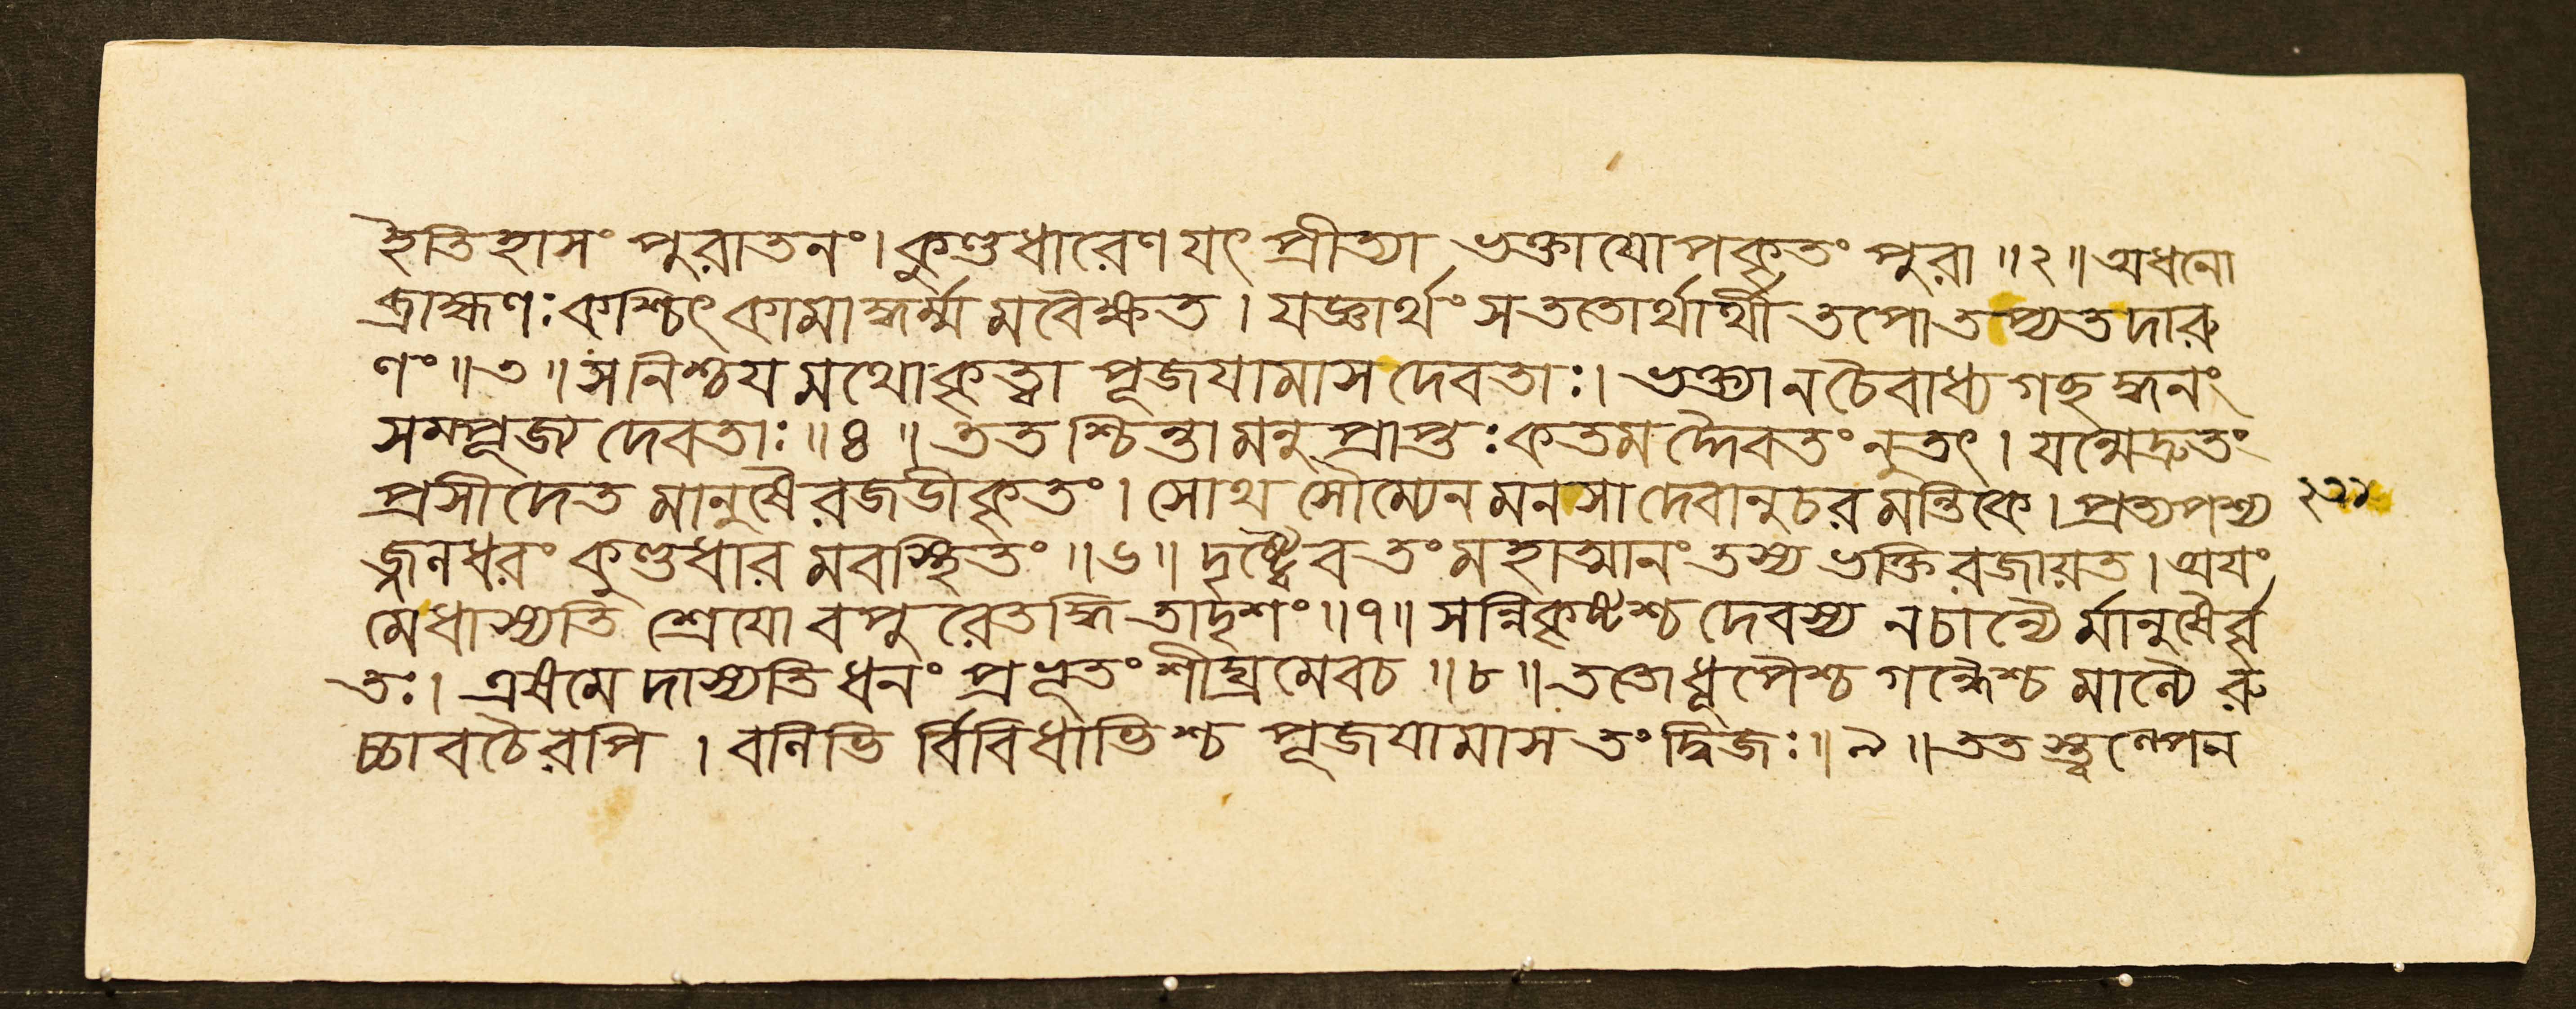 হৈতিহাসং পুরাতনং। কুণ্ডধারেণ যৎ প্রীত্যা ভক্তাযোপকৃতং পুরা ॥২॥ অধনো
ব্রাহ্মণঃ কশ্চিৎ কামাদ্ধর্ম্মমবৈক্ষত। যজ্ঞার্থং সততোর্থার্থী তপোতপ্যত দারু
ণং ॥৩॥ স নিশ্চযমথো কৃত্বা পূজযামাস দেবতাঃ। ভক্ত্যা ন চৈবাধ্যগচ্ছদ্ধনং
সম্পূজ্য দেবতাঃ ॥৪॥ ততশ্চিন্তামনুপ্রাপ্তঃ কতমদ্দৈবতং নু তৎ। যন্মে দ্রুতং
প্রসীদেত মানুষৈরজডীকৃতং। সোথ সৌম্যেন মনসা দেবানুচরমন্তিকে। প্রত্যপশ্য
জ্জলধরং কুণ্ডধারমবস্থিতং ॥৬॥ দৃষ্ট্বৈব তং মহাত্মানং তস্য ভক্তিরজায়ত। অযং
মে ধাস্যতি শ্রেযো বপুরেতদ্ধি তাদৃশং ॥৭॥ সন্নিকৃষ্টশ্চ দেবস্য ন চান্যৈর্মানুষৈর্বৃ
তঃ। এষ মে দাস্যতি ধনং প্রভূতং শীঘ্রমেব চ ॥৮॥ ততো ধূপৈশ্চ গন্ধৈশ্চ মাল্যৈরু
চ্চাবচৈরপি। বলিভির্বিবিধাভিশ্চ পূজযামাস তং দ্বিজঃ ॥৯॥ ততস্ত্বল্পেন